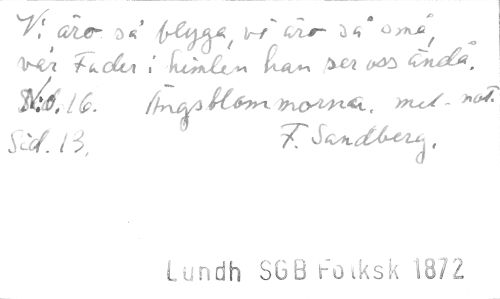 Vi äro så blyga, vi äro så små,
vår Fader i himlen han ser oss ändå.
N:o. 16. Ängsblommorna. mel. not.
Sid. 13. F. Sandberg.
Lundh SGB Folksk 1872